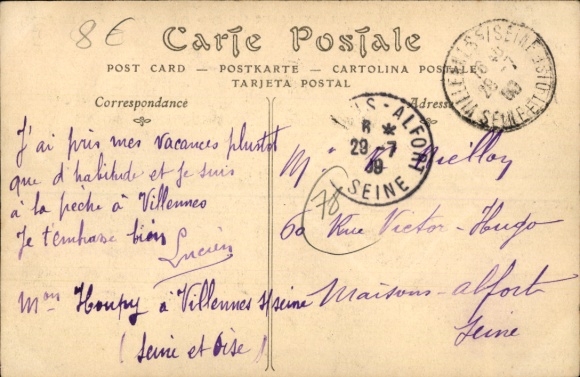 8€
Carte Postale
POST CARD — POSTKARTE — CARTOLINA POSTALE
TARJETA POSTAL
Correspondance
Adresse
J'ai pris mes vacances plustot
que d'habitude et je suis
à la pêche à Villennes
Je t'embrasse bien
Lucien
Mon Houpy à Villennes s/seine
(Seine et Oise)
VILLENNES S/SEINE
28 -7
SEINE-ET-OISE
-ALFORT
6 *
29 -7
09
SEINE
78
60 Rue Victor-Hugo
Maisons-Alfort
Seine